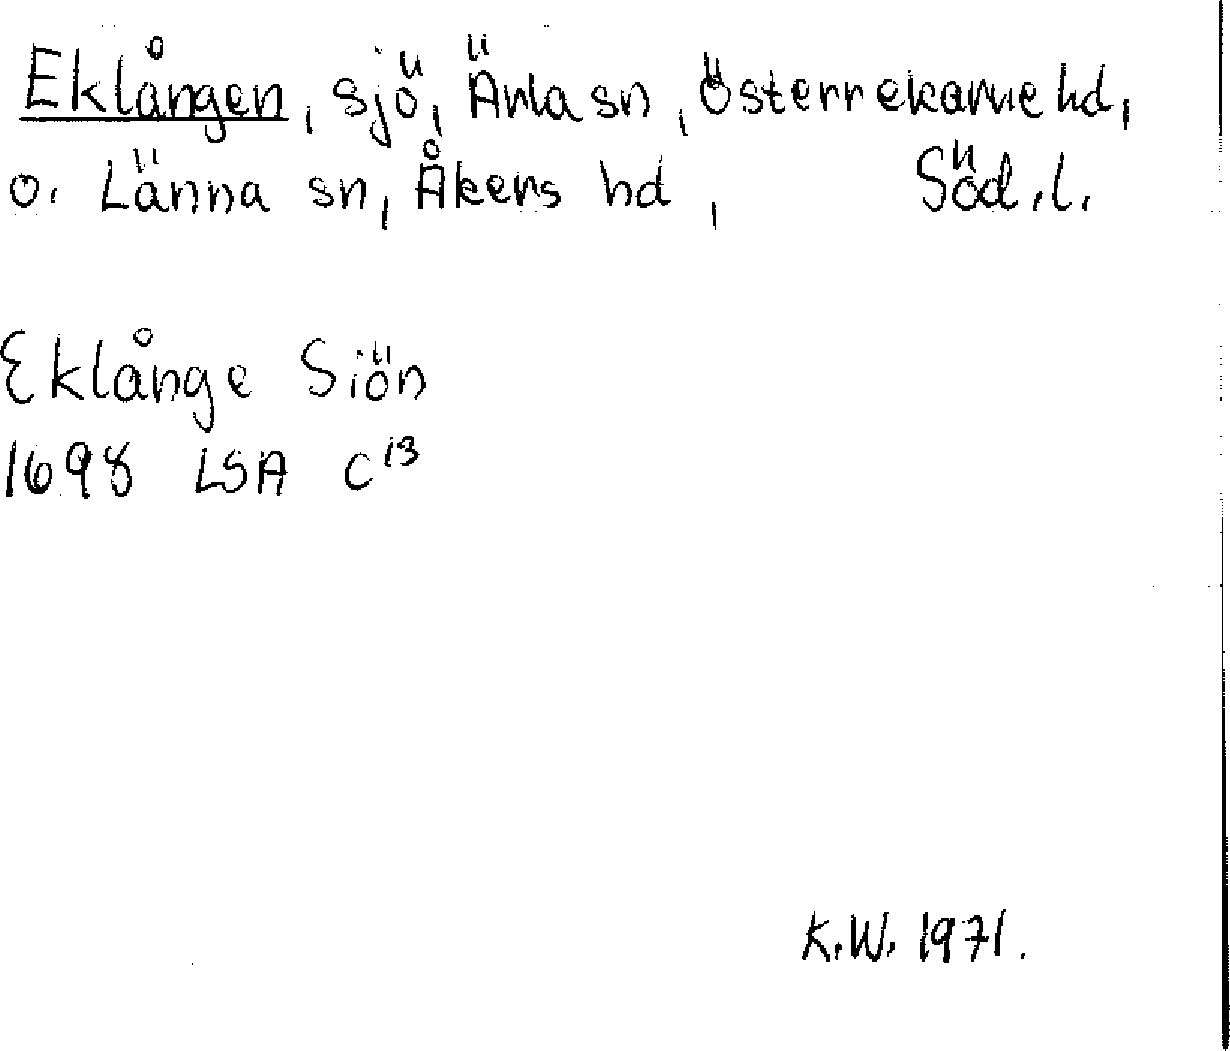 Eklången, sjö, Ärla sn, Österrekarne hd,
o. Länna sn, Åkers hd, Söd.l.
Eklånge Siön
1698 LSA C¹³
K.W. 1971.